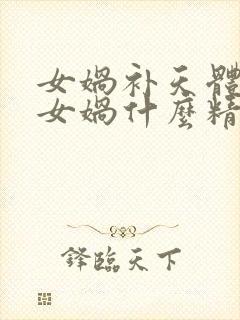 女媧补天體
女媧什麼精
鋒臨天下